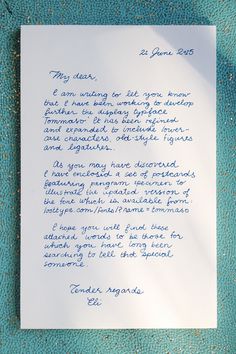 21 June 2015
My dear,
I am writing to let you know
that I have been working to develop
further the display typeface
Tommaso. It has been refined
and expanded to include lower-
case characters, old-style figures
and ligatures.
As you may have discovered
I have enclosed a set of postcards
featuring pangram specimen to
illustrate the updated version of
the font which is available from:
losttype.com/fonts/?name=tommaso
I hope you will find these
attached words to be those for
which you have long been
searching to tell that special
someone.
Tender regards
Eli